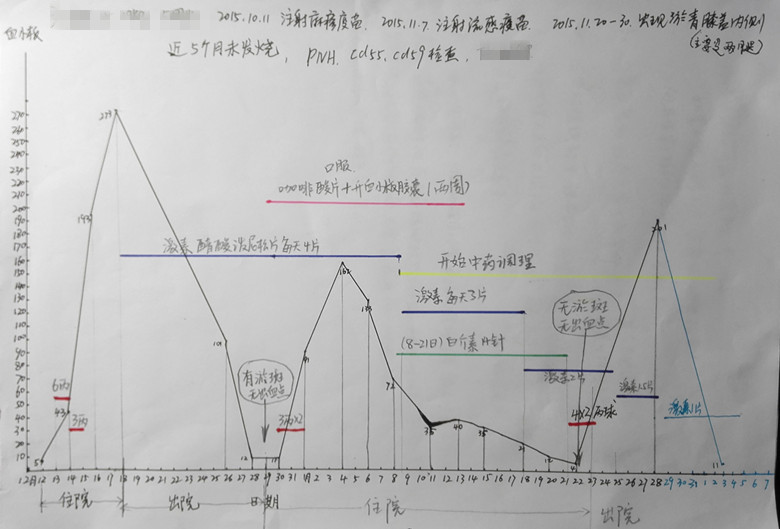 2015.10.11 注射麻疹疫苗. 2015.11.7. 注射流感疫苗. 2015.11.20-30. 出现瘀青膝盖内侧
近5个月未发烧, PNH. cd55. cd59检查,
270
260
250
240
230
220
210
200
190
180
170
160
150
140
130
120
110
100
90
80
70
60
50
40
30
20
10
口服
咖啡酸片+升血小板胶囊(两周)
激素 醋酸泼尼松片每天4片
开始中药调理
激素每天3片
(8-21日) 白介素 针
无瘀斑
无出血点
有瘀斑
无出血点
激素2片
激素1.5片
激素1片
6丙
43
3丙
3丙×2
4×2丙球
193
162
72
35
40
35
21
12
11
12月12 13 14 15 16 17 18 20 21 22 23 24 25 26 27 28 29 30 31 1月 2 3 4 5 6 7 8 9 10 11 12 13 14 15 16 17 18 19 20 21 22 23 24 25 26 27 28 29 30 31 1 2 3 4 5 6 7
住院 出院 日期 住院 出院